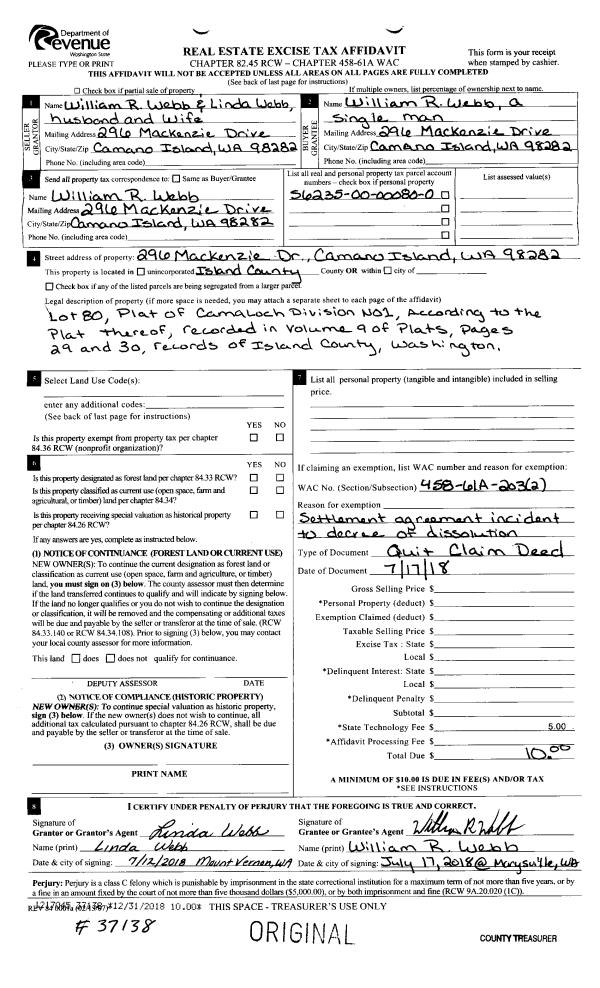 Department of
Revenue
Washington State
PLEASE TYPE OR PRINT
REAL ESTATE EXCISE TAX AFFIDAVIT
CHAPTER 82.45 RCW – CHAPTER 458-61A WAC
This form is your receipt
when stamped by cashier.
THIS AFFIDAVIT WILL NOT BE ACCEPTED UNLESS ALL AREAS ON ALL PAGES ARE FULLY COMPLETED
(See back of last page for instructions)
☐ Check box if partial sale of property
If multiple owners, list percentage of ownership next to name.
1
SELLER
GRANTOR
Name William R. Webb & Linda Webb,
husband and wife
Mailing Address 296 Mackenzie Drive
City/State/Zip Camano Island, WA 98282
Phone No. (including area code)
2
BUYER
GRANTEE
Name William R. Webb, a
single man
Mailing Address 296 Mackenzie Drive
City/State/Zip Camano Island, WA 98282
Phone No. (including area code)
3
Send all property tax correspondence to: ☐ Same as Buyer/Grantee
Name William R. Webb
Mailing Address 296 Mackenzie Drive
City/State/Zip Camano Island, WA 98282
Phone No. (including area code)
List all real and personal property tax parcel account
numbers – check box if personal property
S6235-00-00080-0 ☐
☐
☐
☐
List assessed value(s)
4
Street address of property: 296 Mackenzie Dr., Camano Island, WA 98282
This property is located in ☐ unincorporated Island County County OR within ☐ city of
☐ Check box if any of the listed parcels are being segregated from a larger parcel.
Legal description of property (if more space is needed, you may attach a separate sheet to each page of the affidavit)
Lot 80, Plat of Camaloch Division NO1, According to the
Plat thereof, recorded in Volume 9 of Plats, Pages
29 and 30, records of Island County, Washington.
5
Select Land Use Code(s):
enter any additional codes:
(See back of last page for instructions)
YES NO
Is this property exempt from property tax per chapter
84.36 RCW (nonprofit organization)? ☐ ☐
6
YES NO
Is this property designated as forest land per chapter 84.33 RCW? ☐ ☐
Is this property classified as current use (open space, farm and
agricultural, or timber) land per chapter 84.34? ☐ ☐
Is this property receiving special valuation as historical property
per chapter 84.26 RCW? ☐ ☐
If any answers are yes, complete as instructed below.
(1) NOTICE OF CONTINUANCE (FOREST LAND OR CURRENT USE)
NEW OWNER(S): To continue the current designation as forest land or
classification as current use (open space, farm and agriculture, or timber)
land, you must sign on (3) below. The county assessor must then determine
if the land transferred continues to qualify and will indicate by signing below.
If the land no longer qualifies or you do not wish to continue the designation
or classification, it will be removed and the compensating or additional taxes
will be due and payable by the seller or transferor at the time of sale. (RCW
84.33.140 or RCW 84.34.108). Prior to signing (3) below, you may contact
your local county assessor for more information.
This land ☐ does ☐ does not qualify for continuance.
DEPUTY ASSESSOR DATE
(2) NOTICE OF COMPLIANCE (HISTORIC PROPERTY)
NEW OWNER(S): To continue special valuation as historic property,
sign (3) below. If the new owner(s) does not wish to continue, all
additional tax calculated pursuant to chapter 84.26 RCW, shall be due
and payable by the seller or transferor at the time of sale.
(3) OWNER(S) SIGNATURE
PRINT NAME
7
List all personal property (tangible and intangible) included in selling
price.
If claiming an exemption, list WAC number and reason for exemption:
WAC No. (Section/Subsection) 458-61A-203(2)
Reason for exemption
Settlement agreement incident
to decree of dissolution
Type of Document Quit Claim Deed
Date of Document 7/17/18
Gross Selling Price $
*Personal Property (deduct) $
Exemption Claimed (deduct) $
Taxable Selling Price $
Excise Tax : State $
Local $
*Delinquent Interest: State $
Local $
*Delinquent Penalty $
Subtotal $
*State Technology Fee $ 5.00
*Affidavit Processing Fee $
Total Due $ 10.00
A MINIMUM OF $10.00 IS DUE IN FEE(S) AND/OR TAX
*SEE INSTRUCTIONS
8
I CERTIFY UNDER PENALTY OF PERJURY THAT THE FOREGOING IS TRUE AND CORRECT.
Signature of
Grantor or Grantor's Agent Linda Webb
Name (print) Linda Webb
Date & city of signing: 7/12/2018 Mount Vernon, WA
Signature of
Grantee or Grantee's Agent William R Webb
Name (print) William R. Webb
Date & city of signing: July 17, 2018 @ Marysville, WA
Perjury: Perjury is a class C felony which is punishable by imprisonment in the state correctional institution for a maximum term of not more than five years, or by
a fine in an amount fixed by the court of not more than five thousand dollars ($5,000.00), or by both imprisonment and fine (RCW 9A.20.020 (1C)).
12/31/2018 10.00* THIS SPACE - TREASURER'S USE ONLY
# 37138
ORIGINAL
COUNTY TREASURER